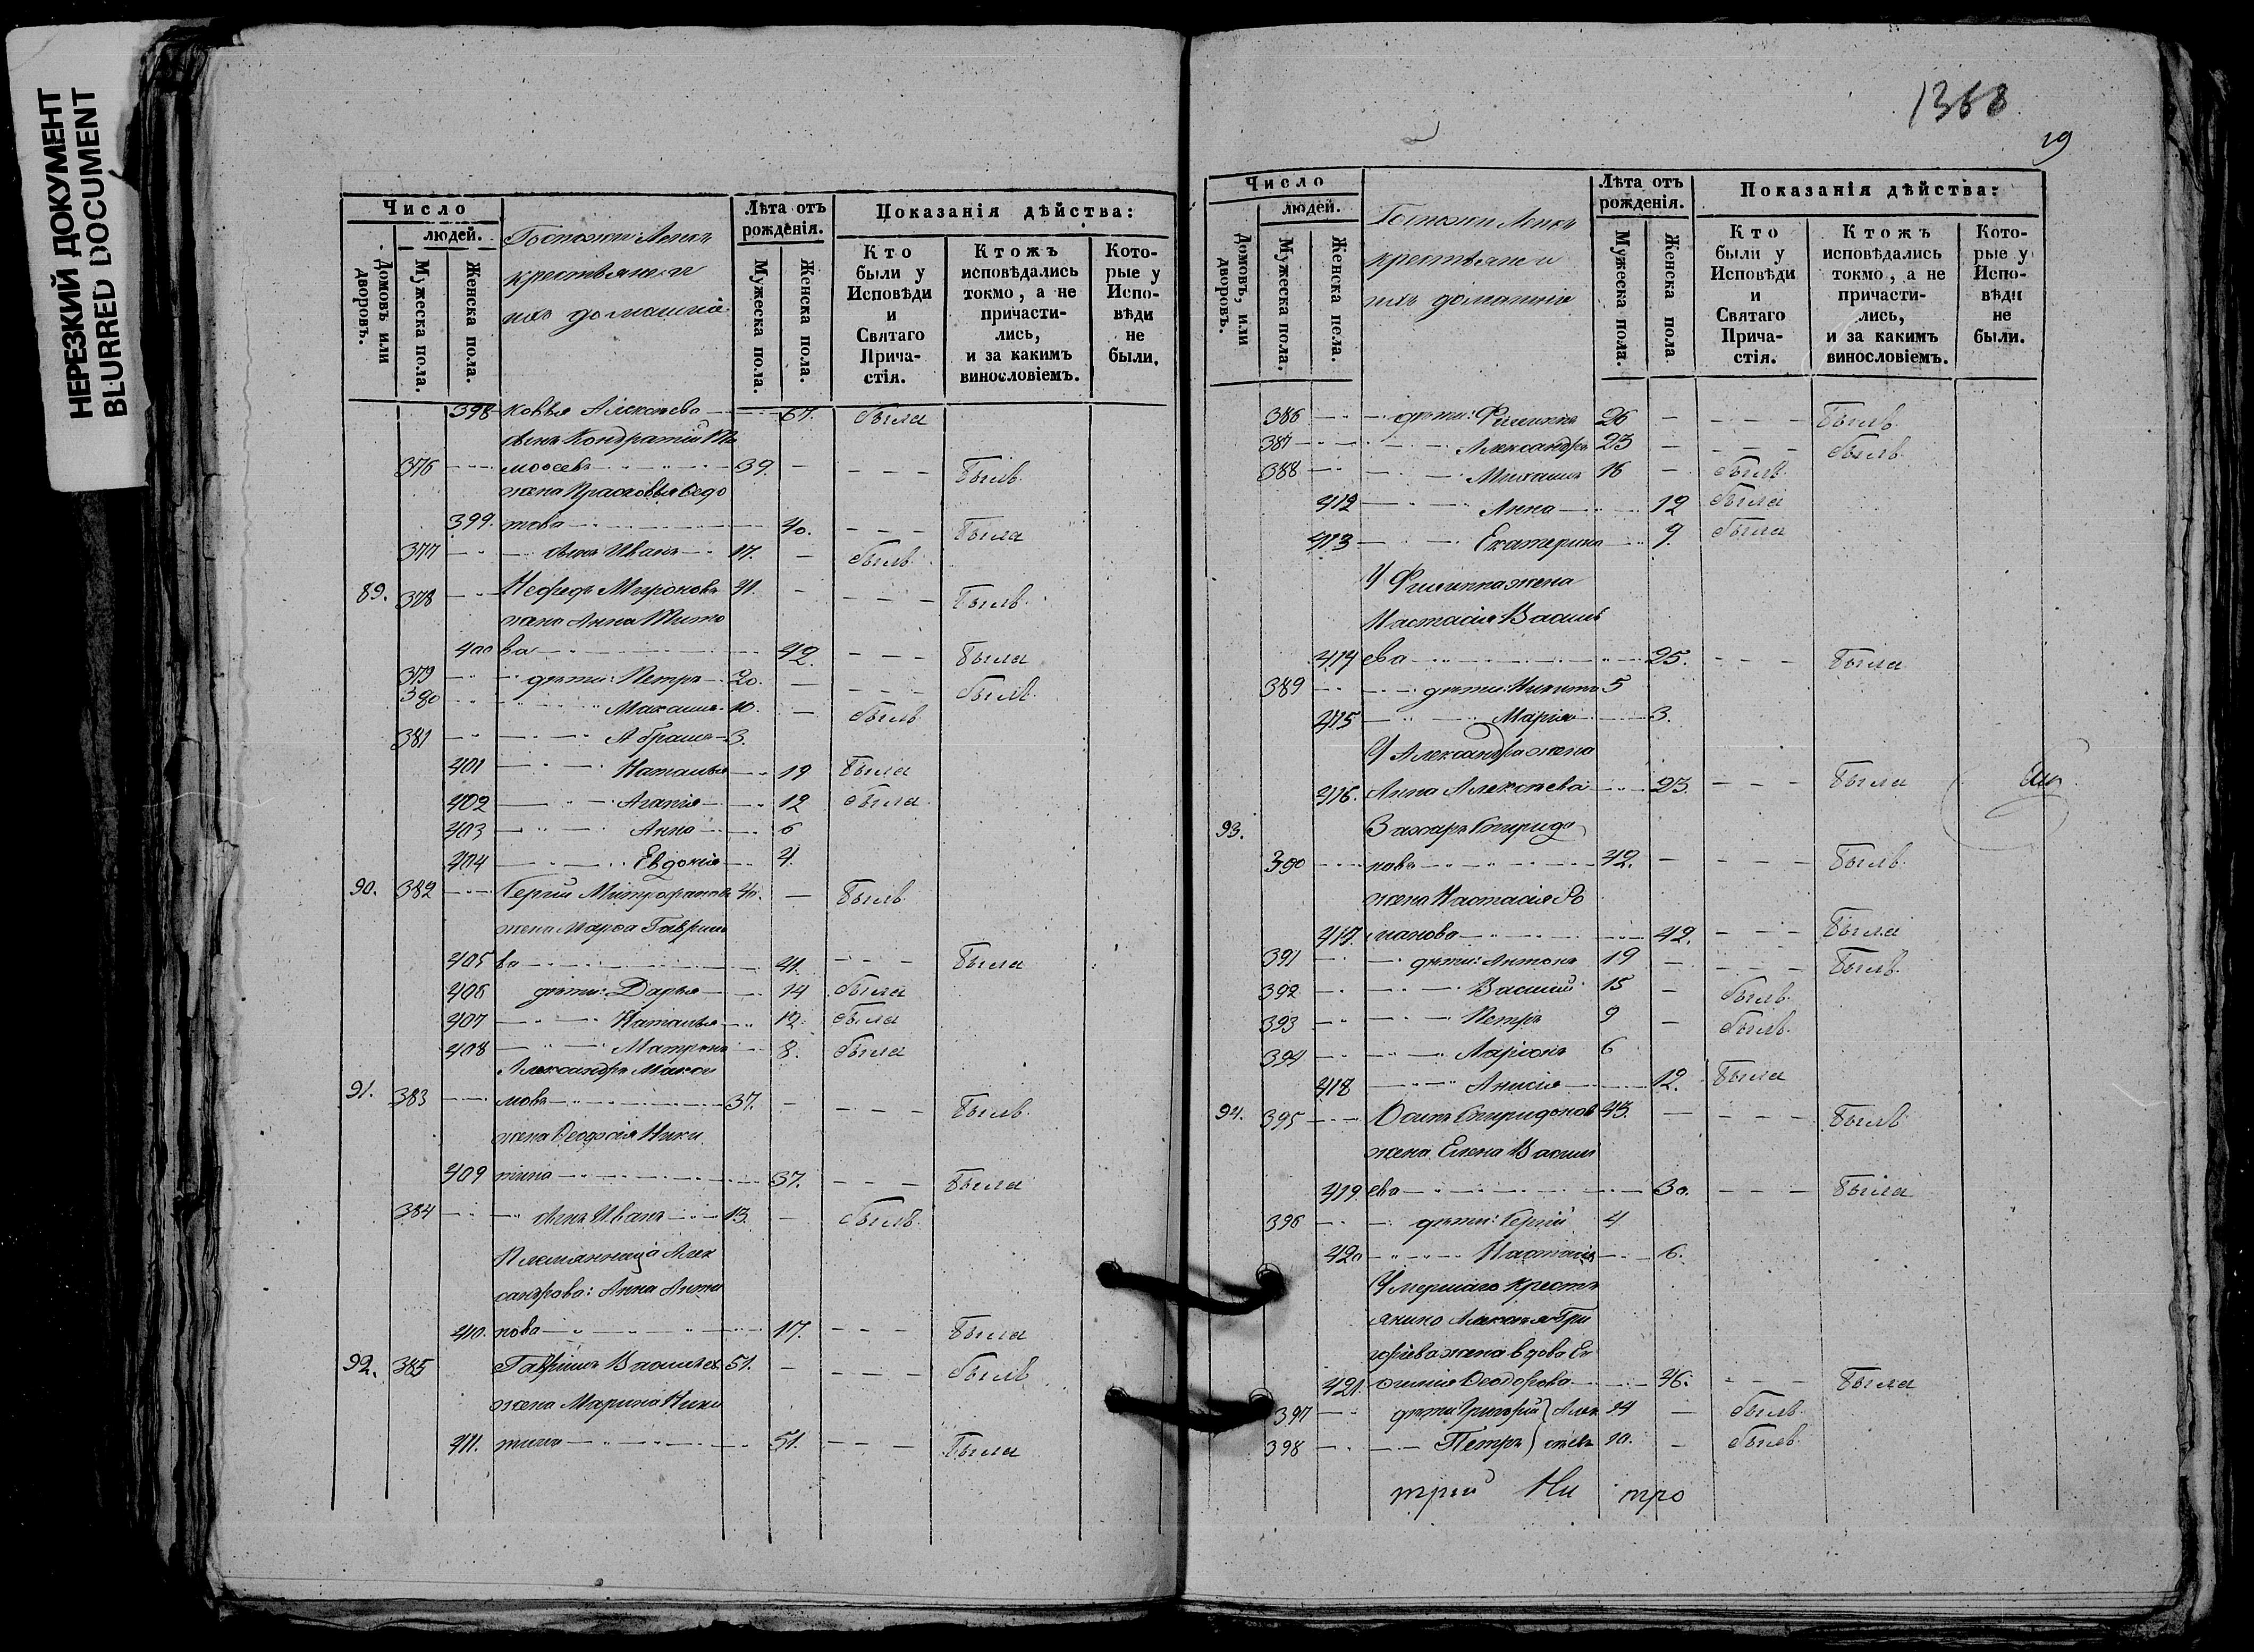 НЕРЕЗКИЙ ДОКУМЕНТ
BLURRED DOCUMENT
Число
людей.
Домовъ или дворовъ.
Мужеска пола.
Женска пола.
крестьяне и
ихъ домашнiе
Лѣта отъ рожденiя.
Мужеска пола.
Женска пола.
Показанiя дѣйства:
Кто были у Исповѣди и Святаго Прича-стiя.
Ктожъ исповѣдались токмо, а не причасти-лись, и за какимъ винословiемъ.
Кото-рые у Испо-вѣди не были.
398 ковья Алексѣева 67. была
сынъ Кондратiй Ти
376 моѳеевъ 39. — былъ
жена Прасковья Ѳедо
399. това 40. былa
377 сынъ Иванъ 17. — былъ
89. 378 Нефедъ Мироновъ 41. — былъ
жена Анна Тито
400 ва 42. была
379 дѣти: Петръ 20. — былъ
380 Максимъ 10. — былъ
381 Абрамъ 3.
401 Наталья 19 была
402 Агапiя 12 была
403 Анна 6
404 Евдокiя 4
90. 382 Сергiй Митрофановъ 40. — былъ
жена Марѳа Гаврило
405 ва 41. была
406 дѣти: Дарья 14 была
407 Наталья 12. была
408 Матрона 8. была
Александръ Макси
91. 383 мовъ 37. — былъ
жена Ѳеодосiя Ники
409 тина 37. была
384 сынъ Иванъ 13. — былъ
Племянница Алек
сандрова: Анна Анти
410. пова 17. была
92. 385 Гаврiилъ Васильев 51. — былъ
жена Марина Ники
411. тина 51. была
1368
19
Число
людей.
Домовъ, или дворовъ.
Мужеска пола.
Женска пола.
крестьяне и
ихъ домашнiе
Лѣта отъ рожденiя.
Мужеска пола.
Женска пола
Показанiя дѣйства:
Кто были у Исповѣди и Святаго Прича-стiя.
Ктожъ исповѣдались токмо, а не причасти-лись, и за какимъ винословiемъ.
Кото-рые у Испо-вѣди не были.
386 дѣти: Филиппъ 26 — былъ
387 Александръ 23 — былъ
388 Михаилъ 16 — былъ
412 Анна 12 была
413 Екатерина 9. была
У Филиппа жена
Настасiя Василь
414 ева 25. была
389 дѣти: Никита 5
415 Марiя 3.
У Александра жена
416. Анна Алексѣева 23. была
93. Захаръ Спиридо
390 новъ 42. — былъ
жена Настасiя Ро
417. манова 42. была
391 дѣти: Антонъ 19 — былъ
392 Василiй 15 — былъ
393 Петръ 9 — былъ
394 Ларiонъ 6
418 Анисiя 12. была
94. 395 Спиридонов 43. — былъ
жена Елена Васил
419. ева 30. была
396 дѣти: Сергiй 4
420 Настасiя 6.
Умершаго кресть
янина Алексѣя Гри
горiева жена вдова Ев
421. ѳимiя Ѳеодорова 46. была
397 дѣти Григорiй } Алек 14 — былъ
398 Петръ } сѣевы 10. — былъ
трiй Ми тро